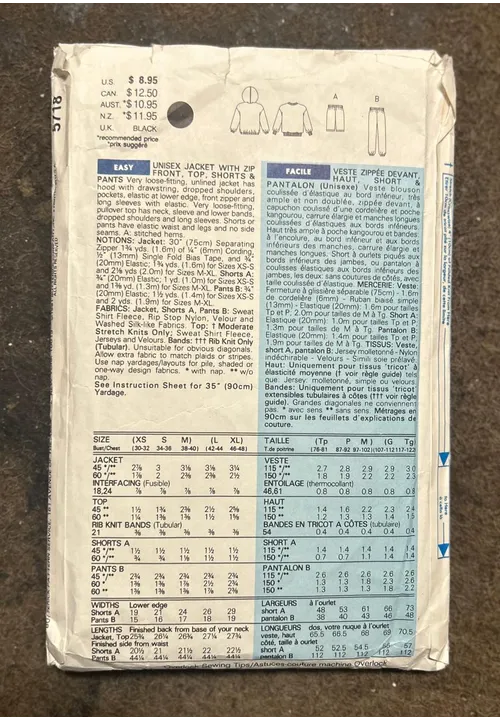 5718
U.S. $ 8.95
CAN. $ 12.50
AUST. *$ 10.95
N.Z. *$ 11.95
U.K. BLACK
*recommended price
*prix suggéré
A
B
EASY
UNISEX JACKET WITH ZIP
FRONT, TOP, SHORTS &
PANTS Very loose-fitting, unlined jacket has
hood with drawstring, dropped shoulders,
pockets, elastic at lower edge, front zipper and
long sleeves with elastic. Very loose-fitting,
pullover top has neck, sleeve and lower bands,
dropped shoulders and long sleeves. Shorts or
pants have elastic waist and legs and no side
seams. A. stitched hems.
NOTIONS: Jacket: 30" (75cm) Separating
Zipper 1¾ yds. (1.6m) of ¼" (6mm) Cording,
½" (13mm) Single Fold Bias Tape, and ¾"
(20mm) Elastic; 1¾ yds. (1.6m) for Sizes XS-S
and 2⅛ yds. (2.0m) for Sizes M-XL. Shorts A:
¾" (20mm) Elastic; 1 yd. (1.0m) for Sizes XS-S
and 1⅜ yds. (1.3m) for Sizes M-XL. Pants B: ¾"
(20mm) Elastic; 1½ yds. (1.4m) for Sizes XS-S
and 2 yds. (1.9m) for Sizes M-XL.
FABRICS: Jacket, Shorts A, Pants B: Sweat
Shirt Fleece, Rip Stop Nylon, Velour and
Washed Silk-like Fabrics. Top: † Moderate
Stretch Knits Only; Sweat Shirt Fleece,
Jerseys and Velours. Bands: ††† Rib Knit Only
(Tubular). Unsuitable for obvious diagonals.
Allow extra fabric to match plaids or stripes.
Use nap yardages/layouts for pile, shaded or
one-way design fabrics. * with nap. **w/o
nap.
See Instruction Sheet for 35" (90cm)
Yardage.
FACILE
VESTE ZIPPÉE DEVANT,
HAUT, SHORT &
PANTALON (Unisexe) Veste blouson
coulissée d'élastique au bord inférieur, très
ample et non doublée, zippée devant, à
capuchon coulissé d'une cordelière et poche
kangourou, carrure élargie et manches longues
coulissées d'élastiques aux bords inférieurs.
Haut très ample à poche kangourou et bandes
à l'encolure, au bord inférieur et aux bords
inférieurs des manches, carrure élargie et
manches longues. Short à ourlets piqués aux
bords inférieurs des jambes, ou pantalon à
coulisses élastiques aux bords inférieurs des
jambes, les deux: sans coutures de côtés, avec
taille coulissée d'élastique. MERCERIE: Veste:
Fermeture à glissière séparable (75cm) - 1.6m
de cordelière (6mm) - Ruban biaisé simple
(13mm) - Elastique (20mm): 1.6m pour tailles
Tp et P, 2.0m pour tailles de M à Tg. Short A:
Elastique (20mm): 1.0m pour tailles Tp et P,
1.3m pour tailles de M à Tg. Pantalon B:
Elastique (20mm): 1.4m pour tailles Tp et P,
1.9m pour tailles de M à Tg. TISSUS: Veste,
short A, pantalon B: Jersey molletonné - Nylon
indéchirable - Velours - Simili soie prélavé.
Haut: Uniquement pour tissus 'tricot' à
élasticité moyenne († voir règle guide) tels
que: Jersey: molletonné, simple ou velours.
Bandes: Uniquement pour tissus 'tricot'
extensibles tubulaires à côtes (††† voir règle
guide). Grandes diagonales ne conviennent
pas. * avec sens ** sans sens. Métrages en
90cm sur les feuillets d'explications de
couture.
SIZE (XS S M) (L XL)
Bust/Chest (30-32 34-36 38-40) (42-44 46-48)
JACKET
45 */** 2⅞ 3 3⅛ 3⅛ 3¼
60 */** 1⅞ 2 2⅜ 2⅜ 2½
INTERFACING (Fusible)
18,24 ⅞ ⅞ ⅞ ⅞ ⅞
TOP
45 ** 1½ 1¾ 2⅜ 2½ 2⅝
60 ** 1¼ 1⅜ 1⅜ 1½ 1⅝
RIB KNIT BANDS (Tubular)
21 ⅜ ⅜ ⅜ ⅜ ⅜
SHORTS A
45 */** 1½ 1½ 1½ 1½ 1½
60 */** ¾ ¾ 1⅛ 1½ 1½
PANTS B
45 */** 2¾ 2¾ 2¾ 2¾ 2¾
60 * 1⅜ 1⅜ 1⅞ 2½ 2⅝
60 ** 1⅜ 1⅜ 1⅜ 1⅞ 2⅜
WIDTHS Lower edge
Shorts A 19 21 24 26 29
Pants B 15 16 17 18 19
LENGTHS Finished back from base of your neck
Jacket, Top 25¾ 26¼ 26¾ 27¼ 27¾
Finished side from waist
Shorts A 20½ 21 21½ 22 22½
Pants B 44¼ 44¼ 44¼ 44¼ 44¼
TAILLE (Tp P M ) (G Tg)
T.de poitrine (76-81 87-92 97-102)(107-112 117-122)
VESTE
115 */** 2.7 2.8 2.9 2.9 3.0
150 */** 1.8 1.9 2.2 2.2 2.3
ENTOILAGE (thermocollant)
46,61 0.8 0.8 0.8 0.8 0.8
HAUT
115 ** 1.4 1.6 2.2 2.3 2.4
150 ** 1.2 1.3 1.3 1.4 1.5
BANDES EN TRICOT A CÔTES (tubulaire)
54 0.4 0.4 0.4 0.4 0.4
SHORT A
115 */** 1.4 1.4 1.4 1.4 1.4
150 */** 0.7 0.7 1.1 1.4 1.4
PANTALON B
115 */** 2.6 2.6 2.6 2.6 2.6
150 * 1.3 1.3 1.8 2.3 2.4
150 ** 1.3 1.3 1.3 1.8 2.2
LARGEURS à l'ourlet
short A 48 53 61 66 73
pantalon B 38 40 43 46 48
LONGUEURS dos, votre nuque à l'ourlet
veste, haut 65.5 66.5 68 69 70.5
côté, taille à ourlet
short A 52 52.5 54.5 56 57
pantalon B 112 112 112 112 112
Overlock Sewing Tips/Astuces couture machine Overlock